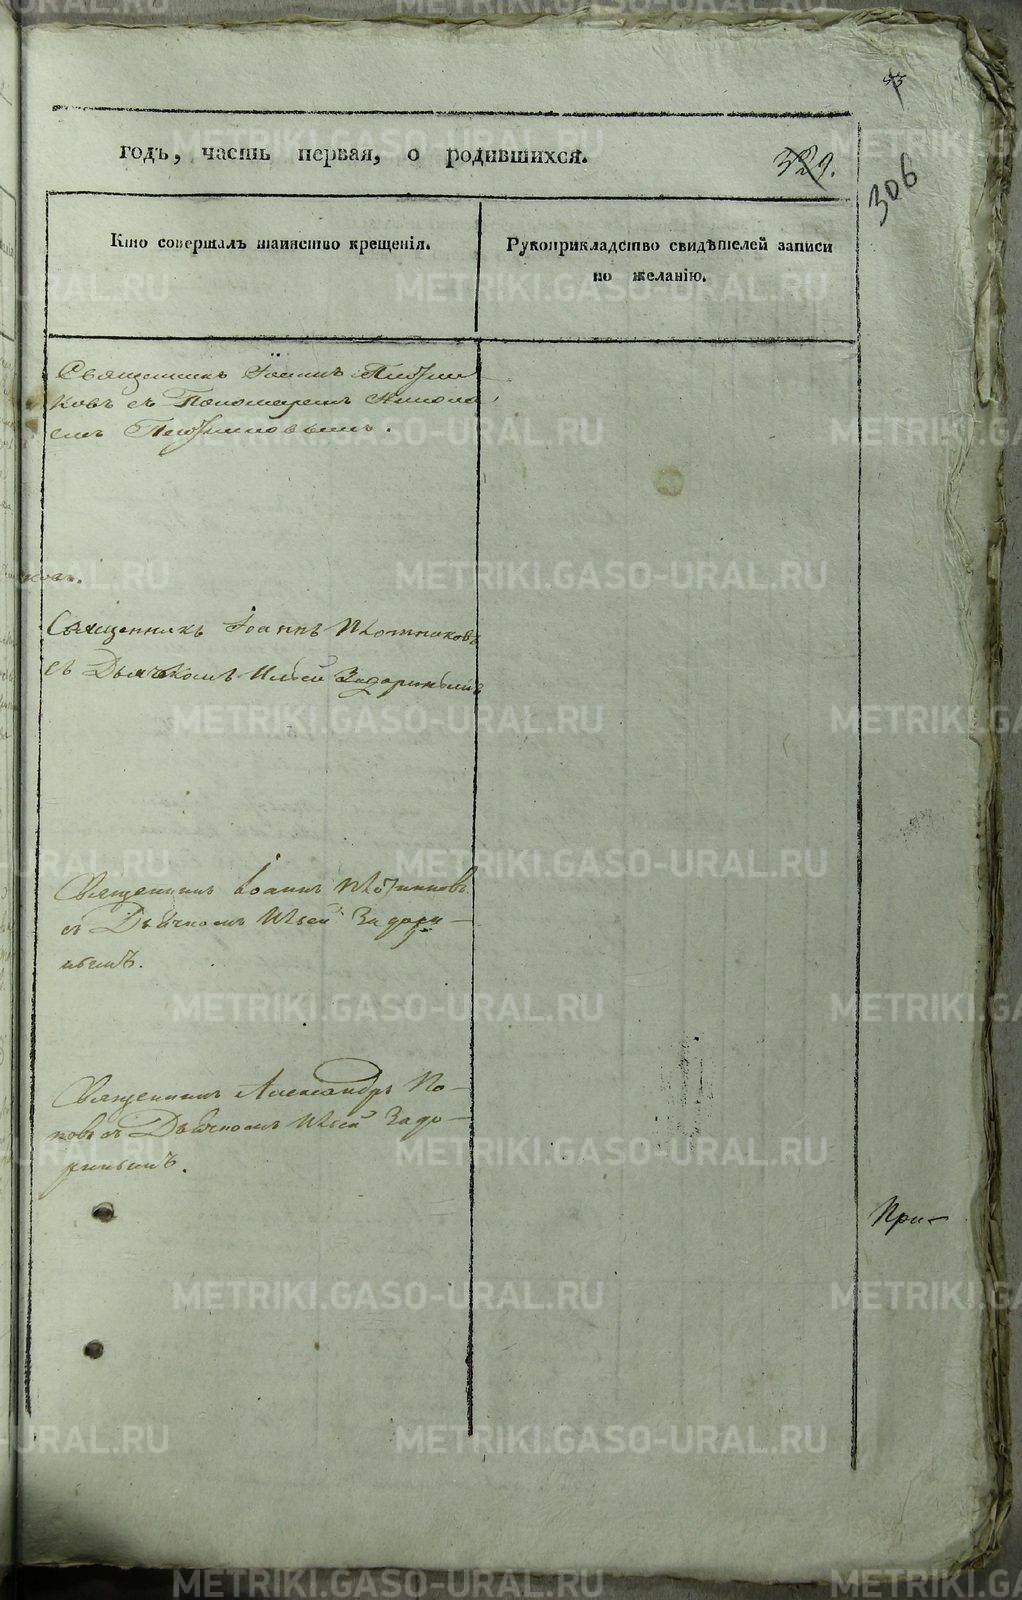 53
годъ, часть первая, о родившихся.
329.
306
Кто совершалъ таинство крещенія.
Рукоприкладство свидѣтелей записи
по желанію.
Священникъ Іоаннъ Плотни
ковъ съ Пономаремъ Никола
емъ
ковъ.
Священникъ Іоаннъ Плотниковъ
съ Дьячкомъ Ильей Задоринымъ
Священникъ Іоаннъ Плотниковъ
съ Дьячкомъ Ильей Задори-
нымъ.
Священникъ Александръ По-
повъ съ Дьячкомъ Ильей Задо-
ринымъ.
При-
METRIKI.GASO-URAL.RU